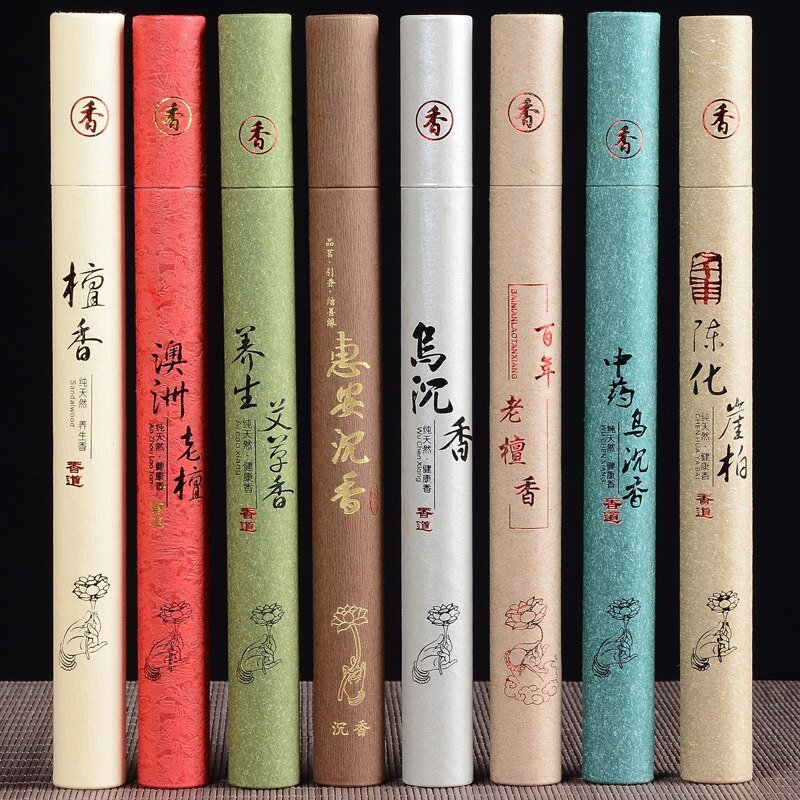 香
檀香
纯天然·养生香
Sandalwood
香道
香
澳洲
老檀
纯天然·健康香
香道
香
养生
艾草香
纯天然·健康香
香道
品茗·引香·结善缘
惠安沉香
沉香
香
乌沉
香
纯天然·健康香
Wu Chen Xiang
香道
香
BAINIANLAOTANXIANG
百年
老檀香
香
中药
乌沉香
纯天然·健康香
香道
香
陈化
崖柏
纯天然·健康香
香道